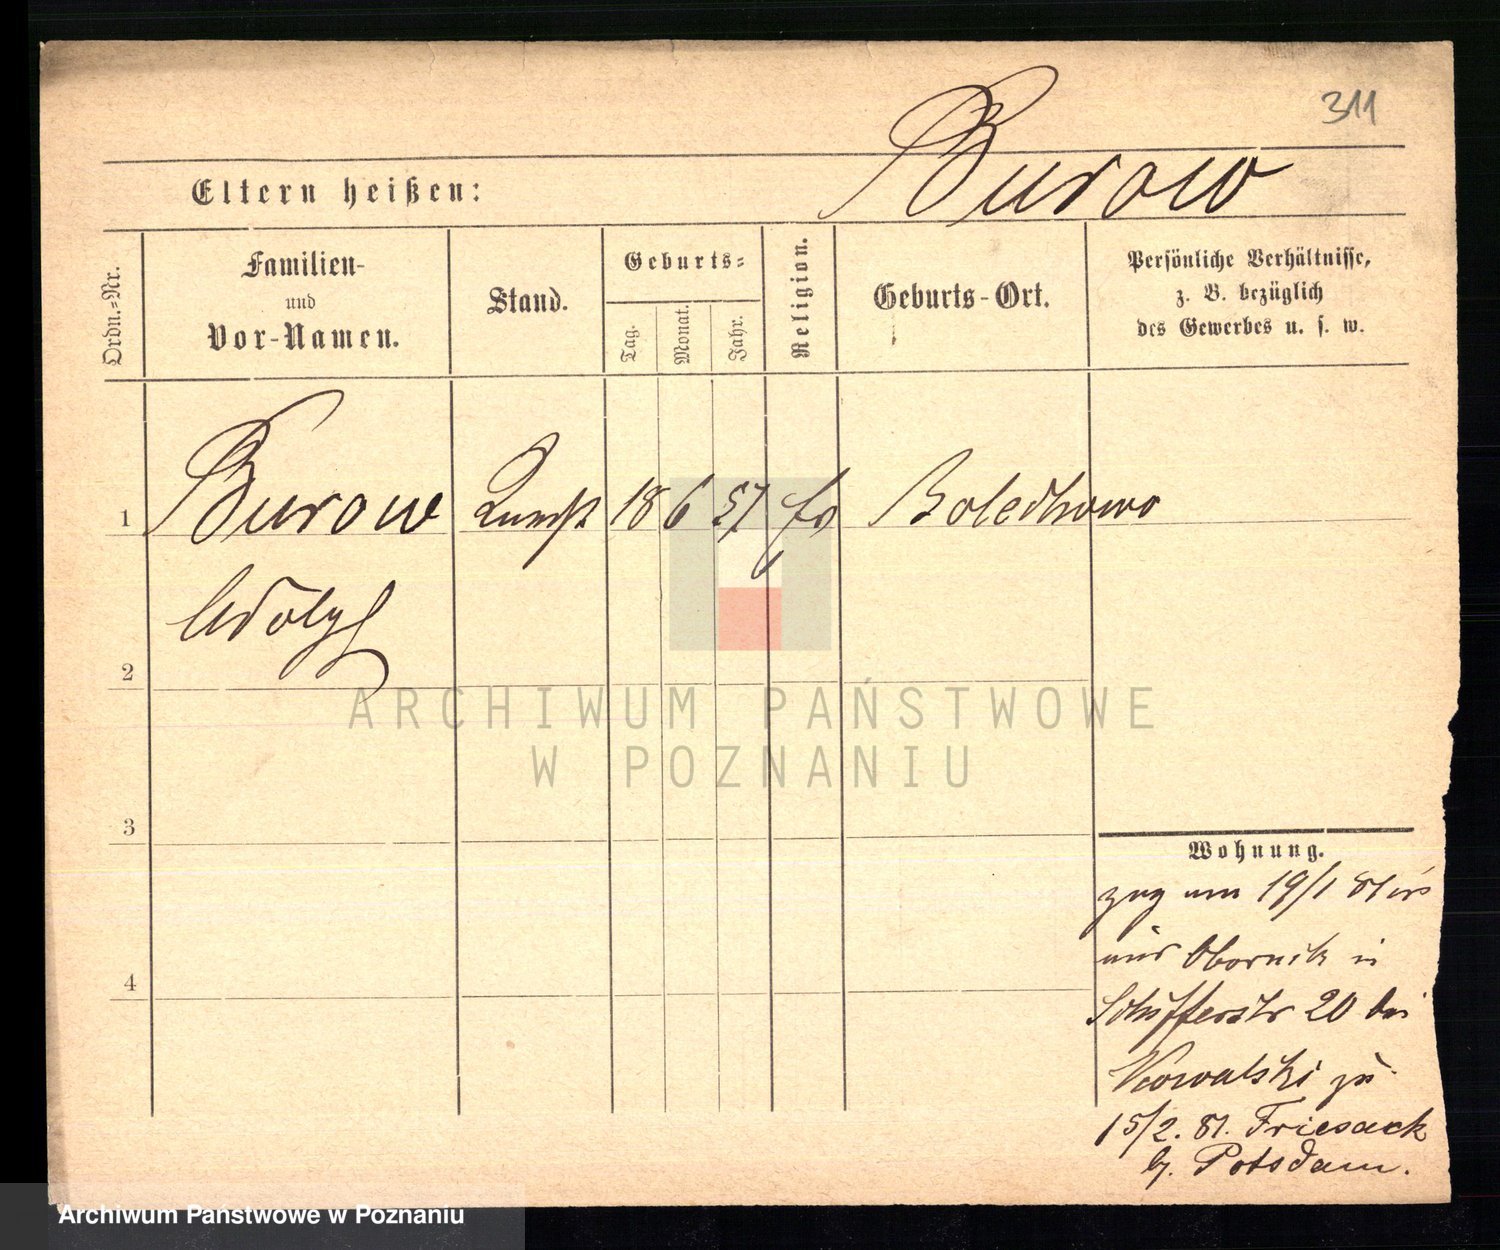 311
Burow
Eltern heißen:
Ordn.-Nr.
Familien-
und
Vor-Namen.
Stand.
Geburts-
Tag.
Monat.
Jahr.
Religion.
Geburts-Ort.
Persönliche Verhältnisse,
z. B. bezüglich
des Gewerbes u. s. w.
1 Burow 18 6 57 Bolechowo
Adolph
2
ARCHIWUM PAŃSTWOWE
W POZNANIU
3
Wohnung.
zog am 19/1 81
aus Obornik in
Schifferstr 20 bei
Kowalski zu
4
15/2. 81. Friesack
b. Potsdam.
Archiwum Państwowe w Poznaniu